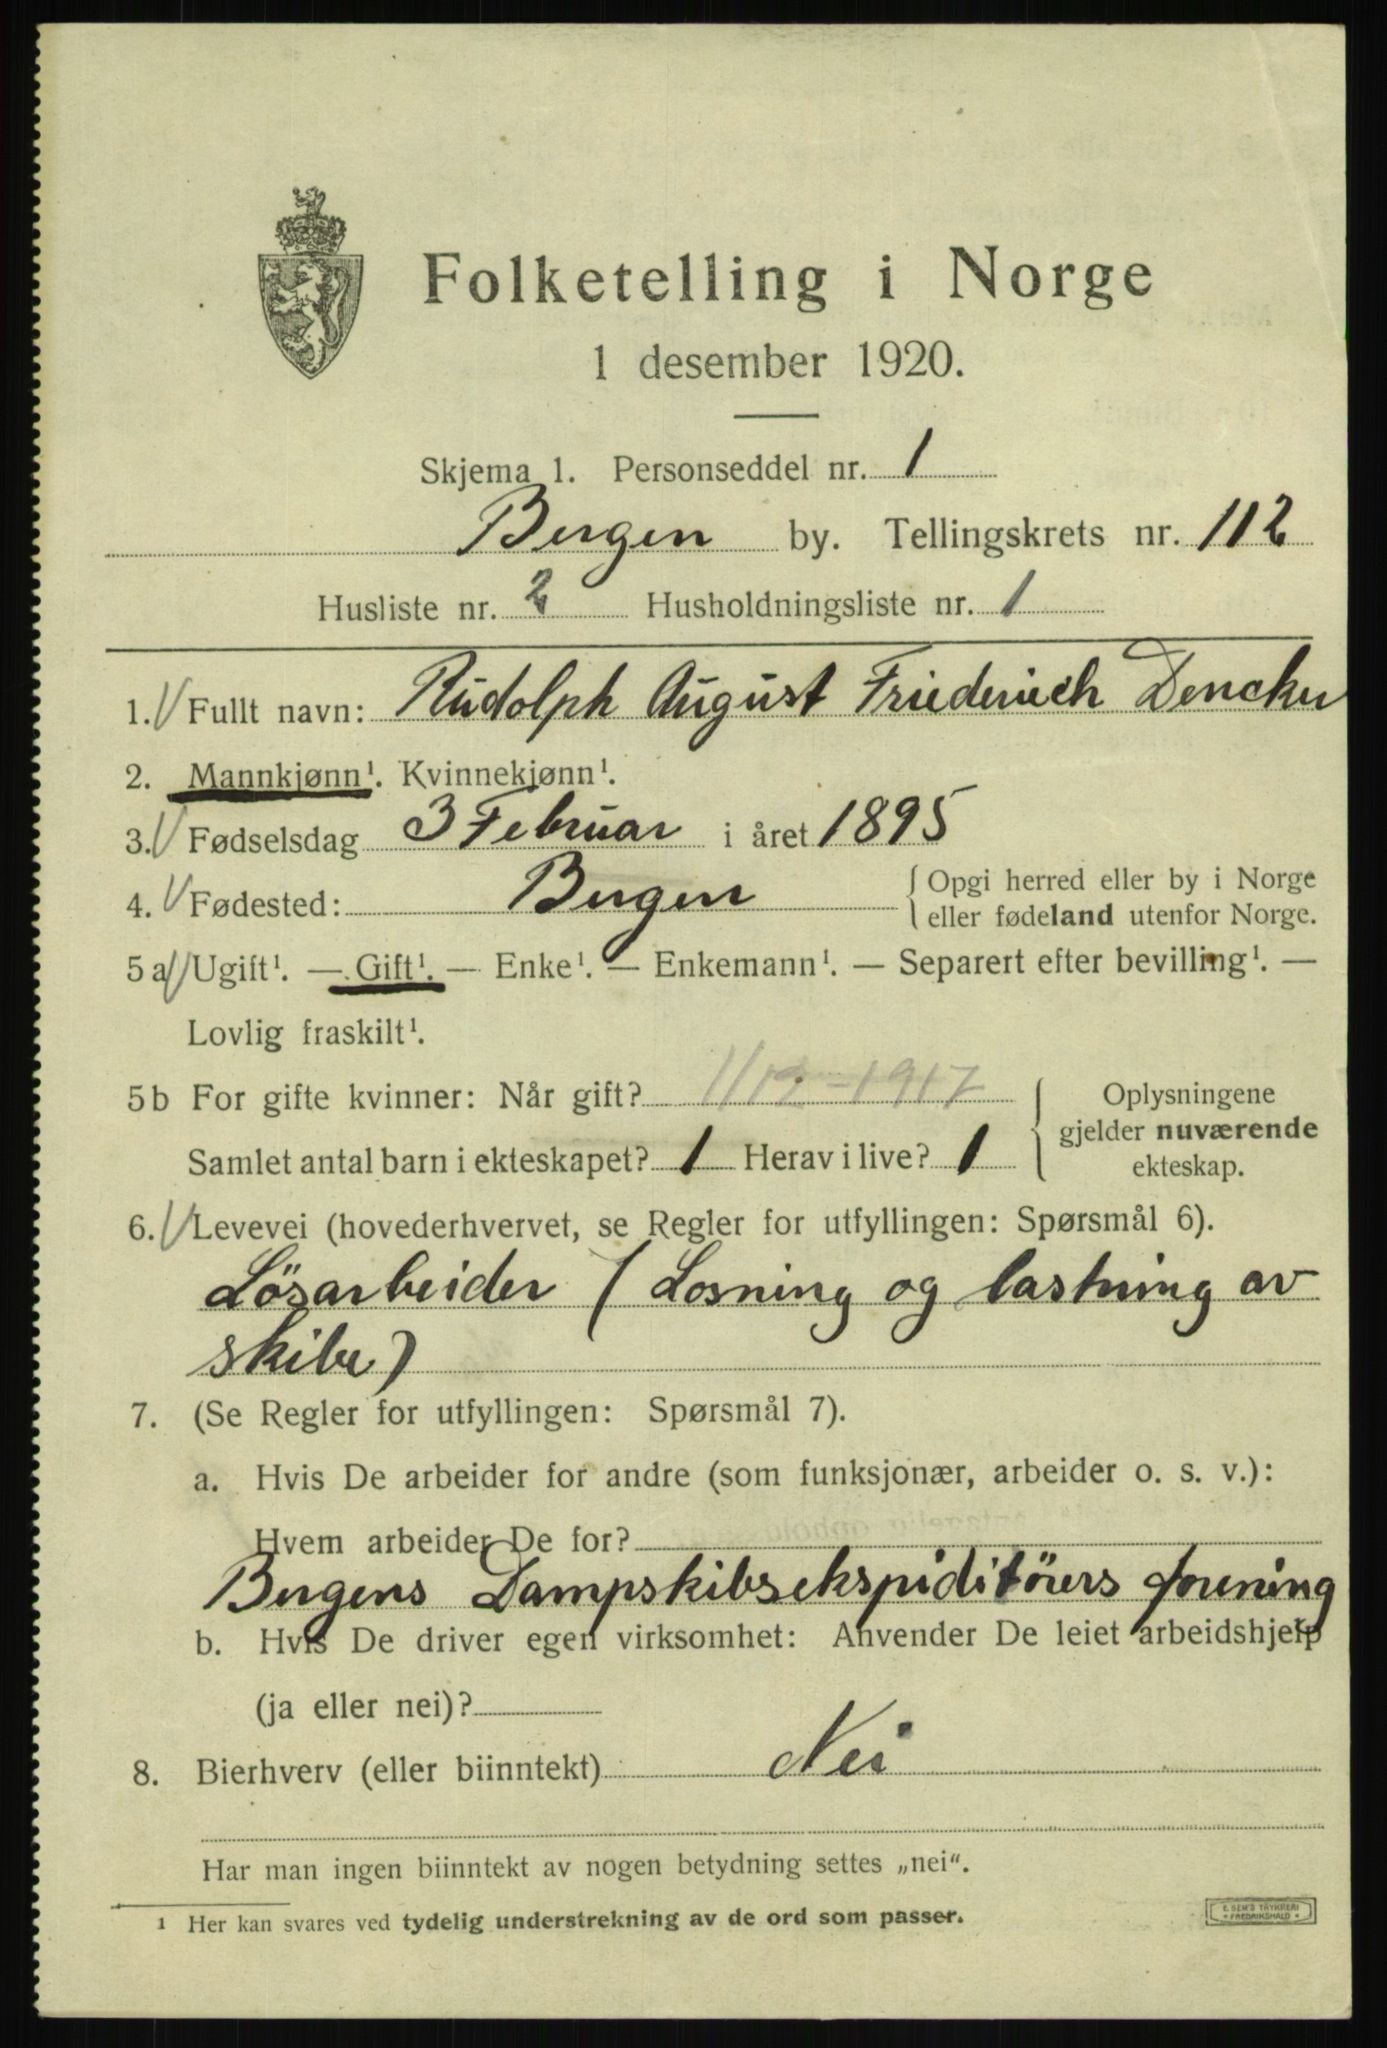 Folketelling i Norge
1 desember 1920.
Skjema 1. Personseddel nr. 1
Bergen by. Tellingskrets nr. 112
Husliste nr. 2 Husholdningsliste nr. 1
1. Fullt navn: Rudolph August Friederich Dencker
2. Mannkjønn¹. Kvinnekjønn¹.
3. Fødselsdag 3 Februar i året 1895
4. Fødested: Bergen { Opgi herred eller by i Norge
eller fødeland utenfor Norge.
5 a Ugift¹. — Gift¹. — Enke¹. — Enkemann¹. — Separert efter bevilling¹. —
Lovlig fraskilt¹.
5 b For gifte kvinner: Når gift? 1/12 - 1917 { Oplysningene
gjelder nuværende
Samlet antal barn i ekteskapet? 1 Herav i live? 1
ekteskap.
6. Levevei (hovederhvervet, se Regler for utfyllingen: Spørsmål 6).
Lösarbeider (Losning og lastning av
skibe)
7. (Se Regler for utfyllingen: Spørsmål 7).
a. Hvis De arbeider for andre (som funksjonær, arbeider o. s. v.):
Hvem arbeider De for?
Bergens Dampskibsekspiditörers forening
b. Hvis De driver egen virksomhet: Anvender De leiet arbeidshjelp
(ja eller nei)?
8. Bierhverv (eller biinntekt) Nei
Har man ingen biinntekt av nogen betydning settes „nei“.
¹ Her kan svares ved tydelig understrekning av de ord som passer.
E. SEM'S TRYKKERI
FREDRIKSHALD